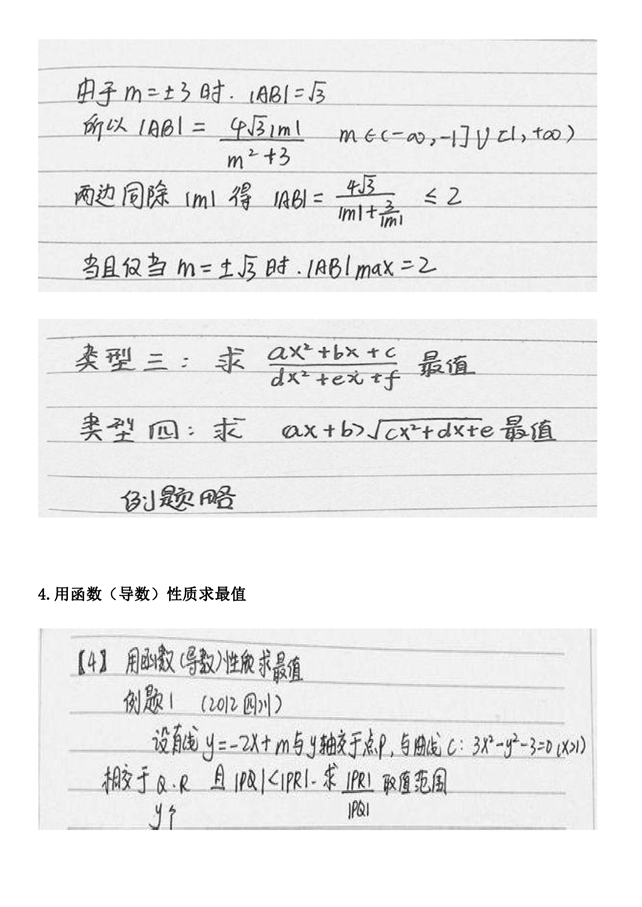 由于 m=±3 时. |AB|=√3
所以 |AB| = 4√3|m| / (m²+3)  m∈(-∞,-1]∪[1,+∞)
两边同除 |m| 得 |AB| = 4√3 / (|m|+3/|m|) ≤ 2
当且仅当 m=±√3 时. |AB|max=2
类型三: 求 (ax²+bx+c) / (dx²+ex+f) 最值
类型四: 求 (ax+b)√(cx²+dx+e) 最值
例题略
4.用函数（导数）性质求最值
【4】 用函数(导数)性质求最值
例题1 (2012四川)
设直线 y=-2x+m与y轴交于点P, 与曲线C: 3x²-y²-3=0 (x>1)
相交于 Q.R 且|PQ|<|PR|. 求 |PR| / |PQ| 取值范围
y